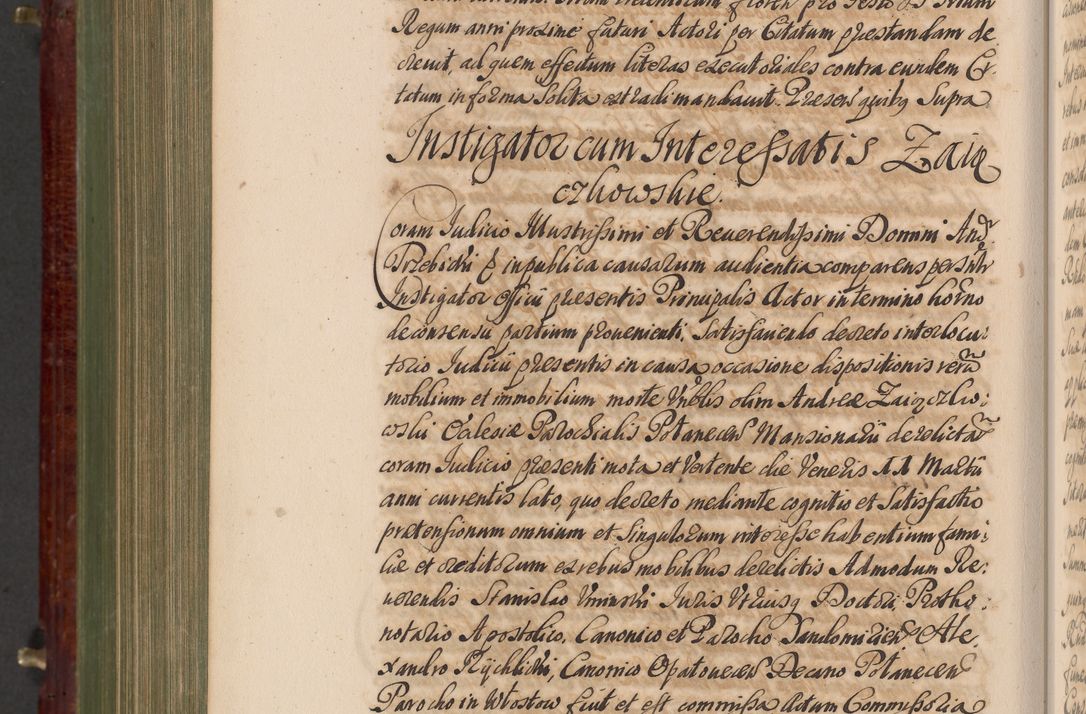 Regum anni proxime futuri Actori per Citatum præstandam de
creuit, ad quem effectum literas executoriales contra eundem Ci-
tatum in forma solita extradi mandauit. Præsen: quibq Supra
Instigator cum Interessatis Zaią
czkowskie.
Coram Iudicio Illustrissimi et Reuerendissimi Domini Andr
Trzebicki &c in publica causarum audientia comparens personlr
Instigator Officii præsentis Principalis Actor in termino horno
de consensu partium proueniente, Satisfaciendo decreto interlocu-
torio Iudicii præsentis in causa occasione dispositionis rerum
mobilium et immobilium morte Vnblis olim Andreæ Zaiączko:
wski Ecclesiæ Parochialis Połanecen Mansionarii derelictarum
coram Iudicio præsenti mota et Vertente die Veneris 11 Martii
anni currentis lato, quo decreto mediante cognitio et Satisfactio
prætensionum omnium et Singulorum interesse habentium fami:
liæ et creditorum ex rebus mobilibus derelictis Admodum Re:
uerendis Stanislao Vminski Iuris Vtriusq Doctori, Protho:
notario Apostolico, Canonico et Parocho Sandomirien &c Ale
xandro Rÿchlicki, Canonico Opatouecen Decano Połanecen
Parocho in Włostow fuit et est commissa Actum Commissoria